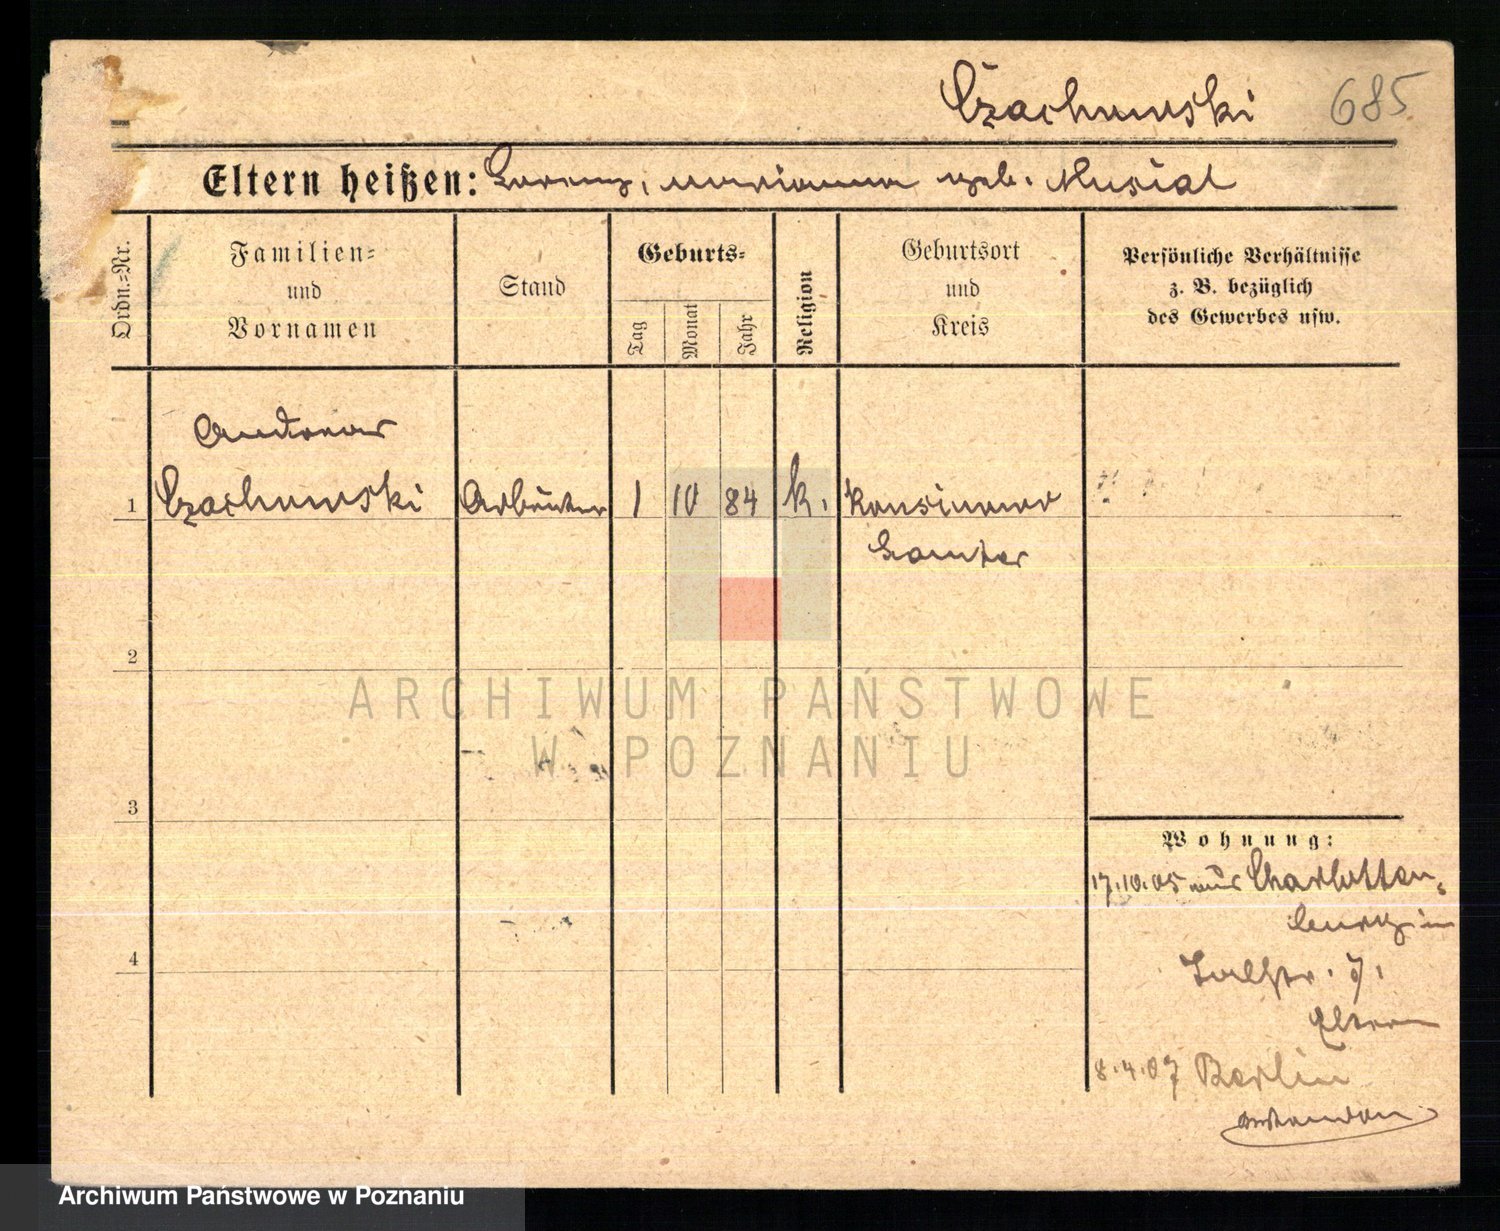 Czachowski 685
Eltern heißen: Lorenz, Marianna geb. Musial
Ordn.-Nr.
Familien-
und
Vornamen
Stand
Geburts-
Tag
Monat
Jahr
Religion
Geburtsort
und
Kreis
Persönliche Verhältnisse
z. B. bezüglich
des Gewerbes usw.
Andreas
1 Czachowski Arbeiter 1 10 84 k.
Samter
2
ARCHIWUM PAŃSTWOWE
W POZNANIU
3
Wohnung:
17.10.05 aus Charlotten-
burg in
7.
Eltern
4
8.4.07 Berlin
Archiwum Państwowe w Poznaniu